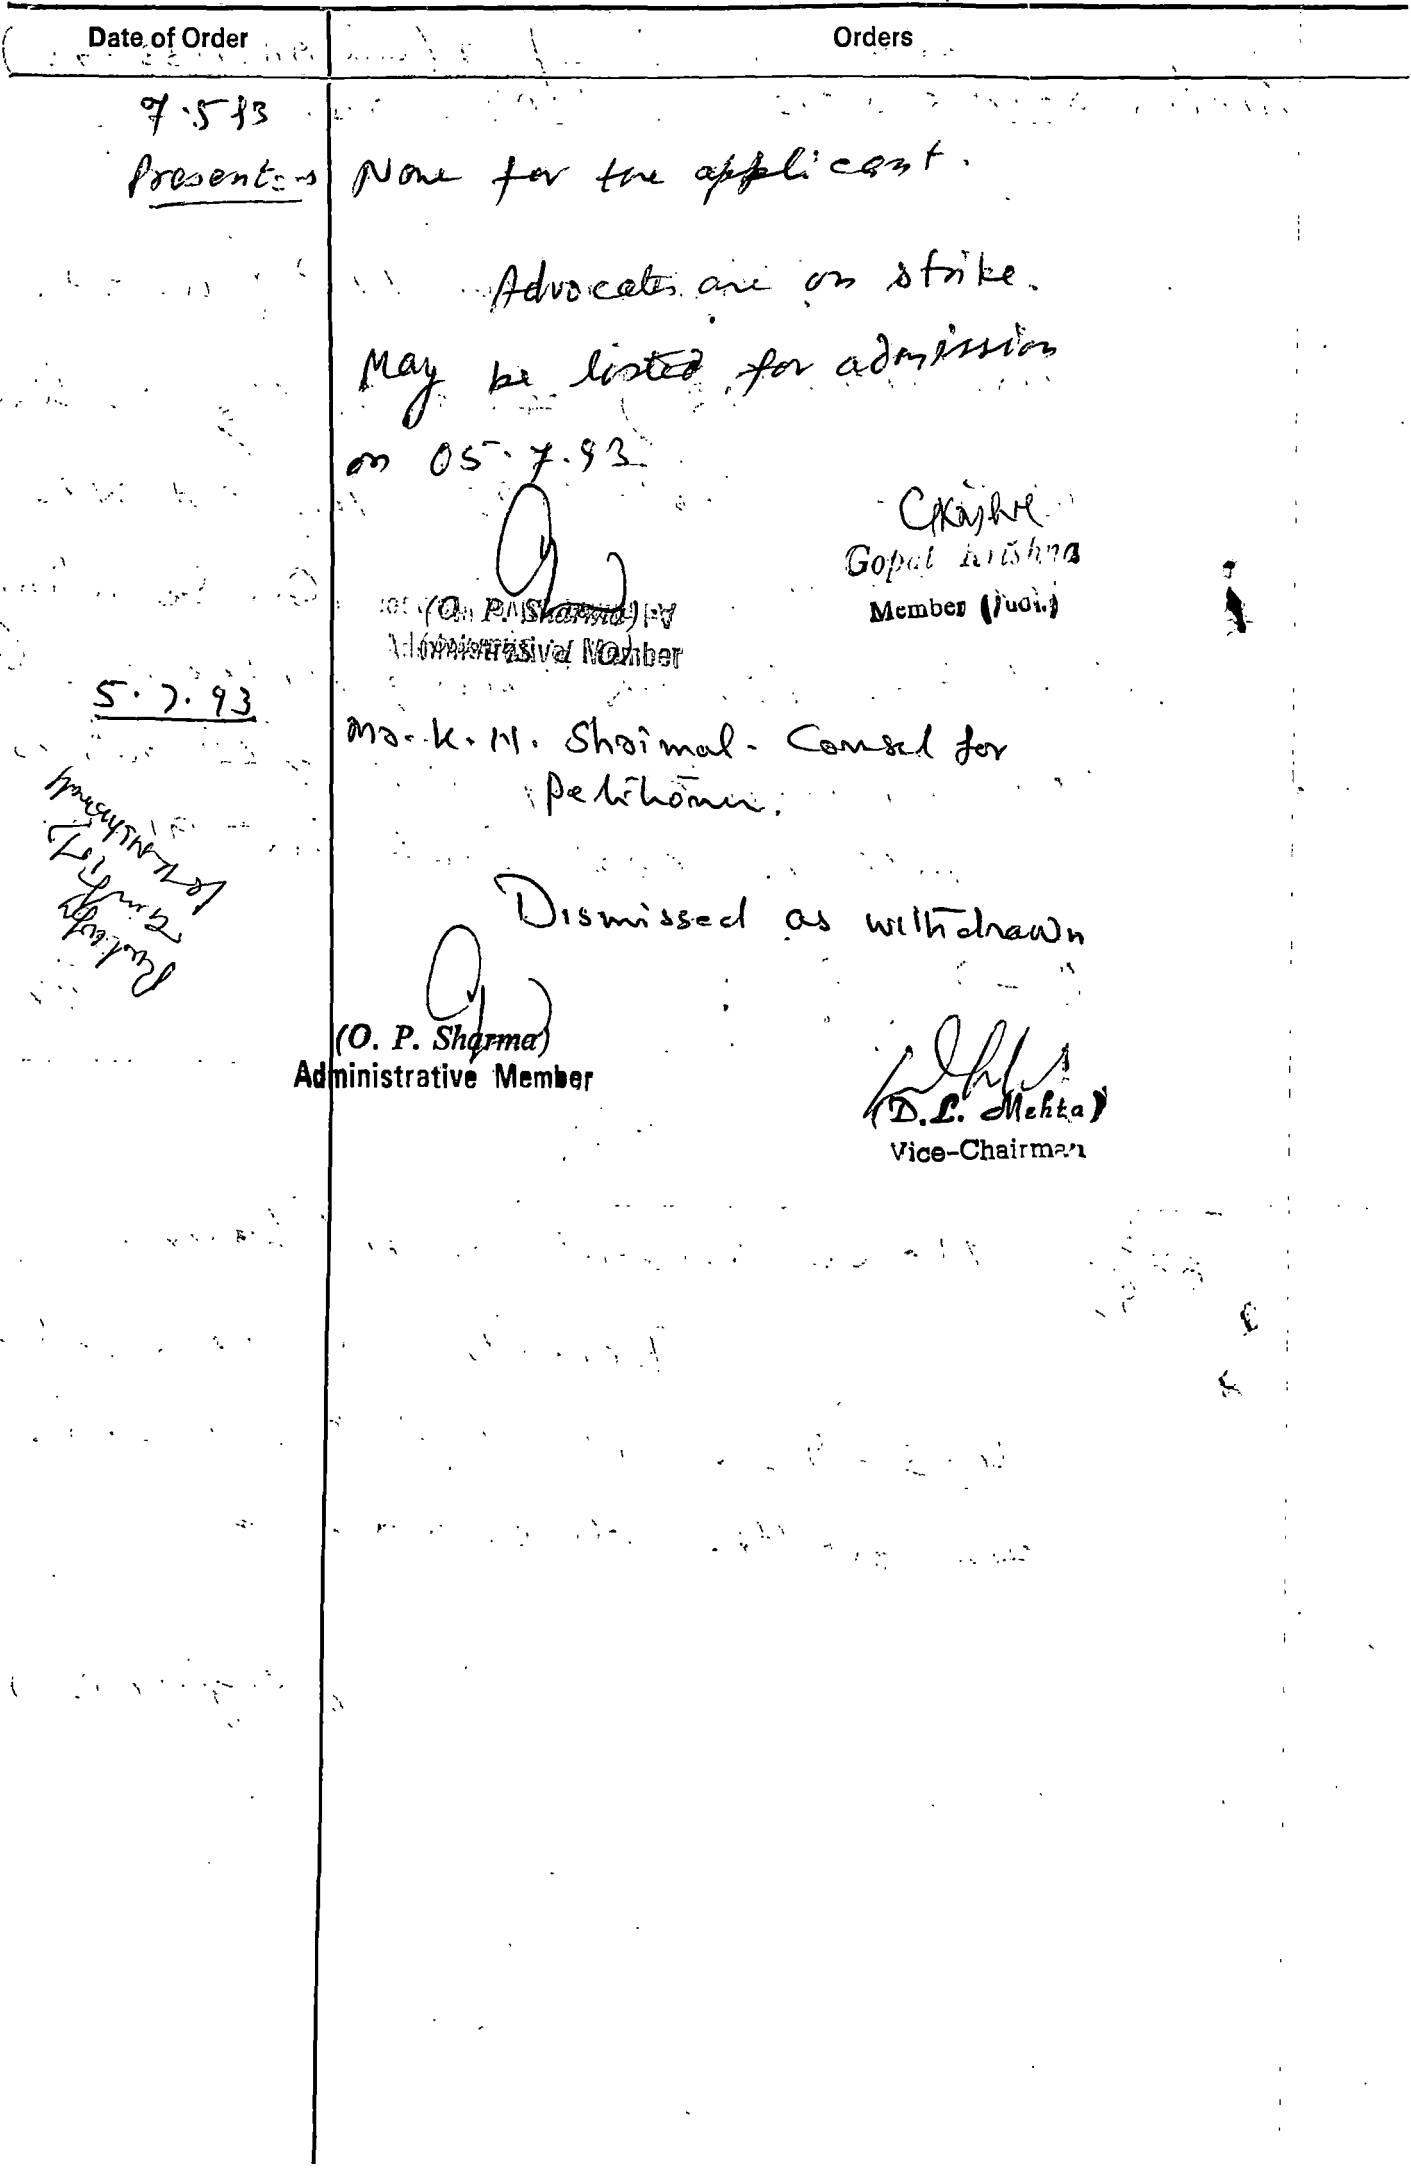 Date of Order
Orders
7.5.93
Present:- None for the applicant.
Advocates are on strike.
May be listed for admission
on 05.7.93
Gopal Krishna
(O. P. Sharma)
Member (Judl.)
Administrative Member
5.7.93
Mr. K. Shrimal - Counsel for
Petitioner.
Dismissed as withdrawn
(O. P. Sharma)
Administrative Member
(D.L. Mehta)
Vice-Chairman